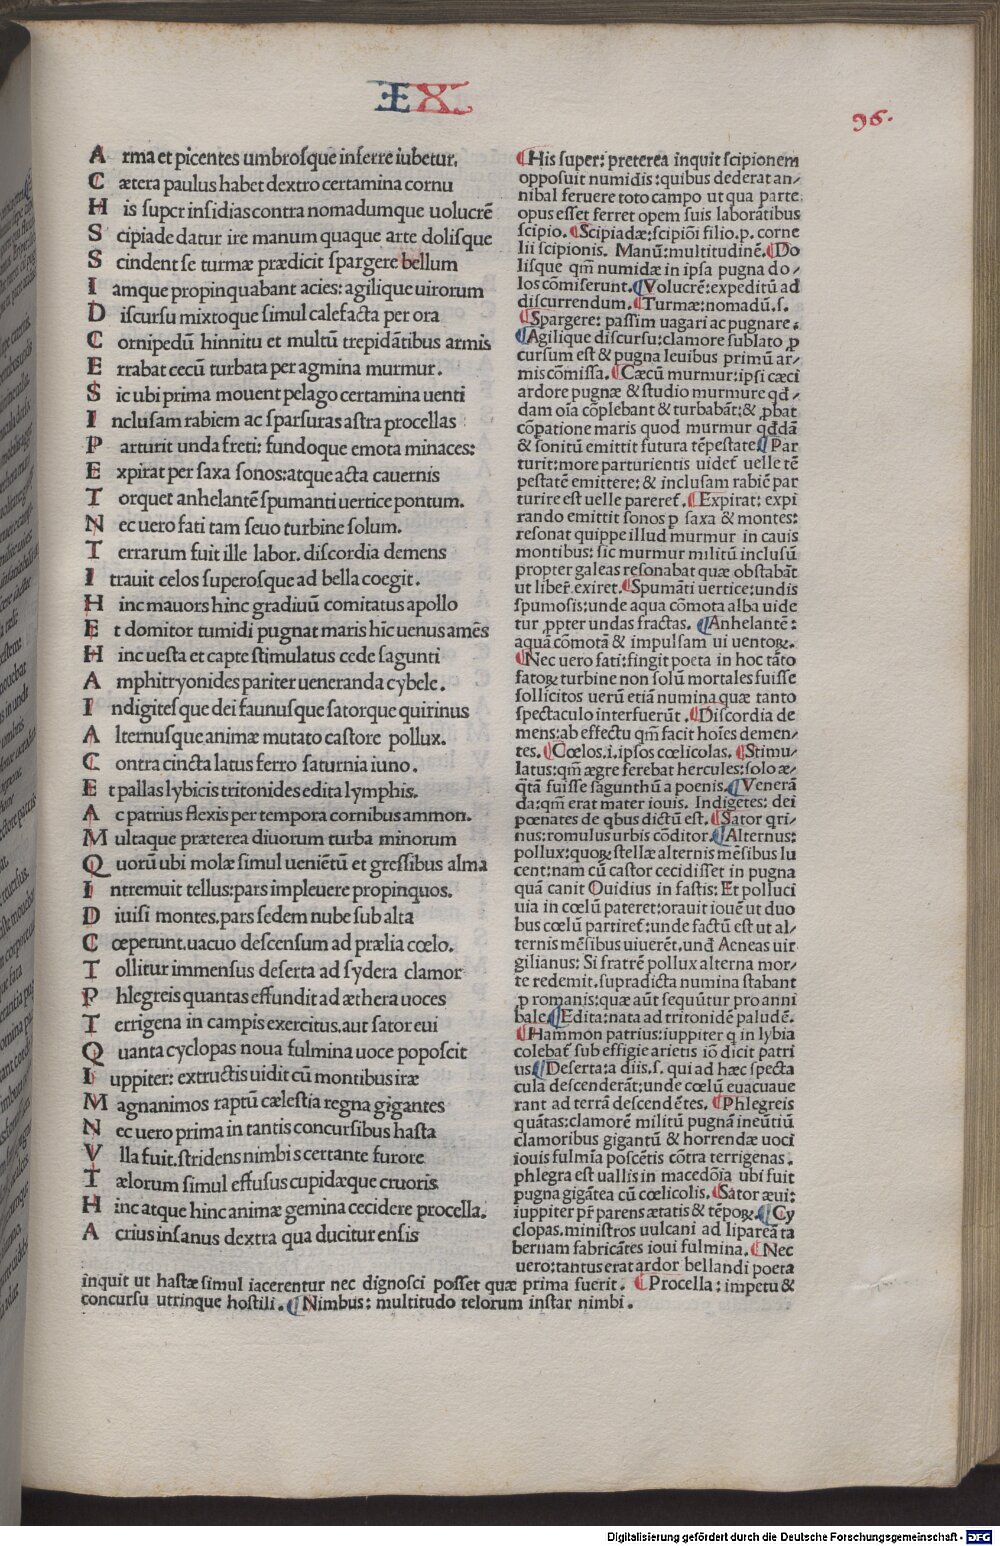 IX
96.
Arma et picentes umbrosque inferre iubetur.
Cætera paulus habet dextro certamina cornu
His super insidias contra nomadumque uolucrẽ
Scipiadæ datur ire manum quaque arte dolisque
Scindent se turmæ prædicit spargere bellum
Iamque propinquabant acies: agilique uirorum
Discursu mixtoque simul calefacta per ora
Cornipedũ hinnitu et multũ trepidãtibus armis
Errabat cecũ turbata per agmina murmur.
Sic ubi prima mouent pelago certamina uenti
Inclusam rabiem ac sparsuras astra procellas
Parturit unda freti: fundoque emota minaces:
Expirat per saxa sonos: atque acta cauernis
Torquet anhelantẽ spumanti uertice pontum.
Nec uero fati tam seuo turbine solum.
Terrarum fuit ille labor. discordia demens
Itrauit celos superosque ad bella coegit.
Hinc mauors hinc gradiuũ comitatus apollo
Et domitor tumidi pugnat maris hĩc uenus amẽs
Hinc uesta et capte stimulatus cede sagunti
Amphitryonides pariter ueneranda cybele.
Indigitesque dei faunusque satorque quirinus
Alternusque animæ mutato castore pollux.
Contra cincta latus ferro saturnia iuno.
Et pallas lybicis tritonides edita lymphis.
Ac patrius flexis per tempora cornibus ammon.
Multaque præterea diuorum turba minorum
Quorũ ubi molæ simul ueniẽtũ et gressibus alma
Intremuit tellus: pars impleuere propinquos.
Diuisi montes. pars sedem nube sub alta
Cœperunt. uacuo descensum ad prælia cœlo.
Tollitur immensus deserta ad sydera clamor
Phlegreis quantas effundit ad æthera uoces
Terrigena in campis exercitus. aut sator eui
Quanta cyclopas noua fulmina uoce poposcit
Iuppiter: extructis uidit cũ montibus iræ
Magnanimos raptũ cælestia regna gigantes
Nec uero prima in tantis concursibus hasta
Vlla fuit. stridens nimbi s certante furore
Tælorum simul effusus cupidæque cruoris
Hinc atque hinc animæ gemina cecidere procella.
Acrius insanus dextra qua ducitur ensis
¶His super: preterea inquit scipionem
opposuit numidis: quibus dederat an/
nibal feruere toto campo ut qua parte
opus esset ferret opem suis laborãtibus
scipio. ¶Scipiadæ: scipiõi filio. p. corne
lii scipionis. Manũ: multitudinẽ. ¶Do
lisque qm̃ numidæ in ipsa pugna do/
los cõmiserunt. ¶Volucrẽ: expeditũ ad
discurrendum. ¶Turmæ: nomadũ. s.
¶Spargere: passim uagari ac pugnare.
¶Agilique discursu: clamore sublato ꝑ
cursum est & pugna leuibus primũ ar/
mis cõmissa. ¶Cæcũ murmur: ipsi cæci
ardore pugnæ & studio murmure qđ/
dam oĩa cõplebant & turbabãt: & ꝓbat
cõpatione maris quod murmur qđdã
& sonitũ emittit futura tẽpestate ¶Par
turit: more parturientis uidet̃ uelle tẽ
pestatẽ emittere: & inclusam rabiẽ par
turire est uelle pareret̃. ¶Expirat: expi
rando emittit sonos ꝑ saxa & montes:
resonat quippe illud murmur in cauis
montibus: sic murmur militũ inclusũ
propter galeas resonabat quæ obstabãt
ut liber̃ exiret. ¶Spumãti uertice: undis
spumosis: unde aqua cõmota alba uide
tur ꝓpter undas fractas. ¶Anhelantẽ:
aquã cõmotã & impulsam ui uentoꝝ.
¶Nec uero fati: fingit poeta in hoc tãto
fatoꝝ turbine non solũ mortales fuisse
sollicitos uerũ etiã numina quæ tanto
spectaculo interfuerũt. ¶Discordia de
mens: ab effectu qm̃ facit hoĩes demen/
tes. ¶Cœlos. i. ipsos cœlicolas. ¶Stimu/
latus: qm̃ ægre ferebat hercules: solo æ/
q̃tã fuisse sagunthũ a poenis. ¶Venerã
da: qm̃ erat mater iouis. Indigetes: dei
pœnates de qbus dictũ est. ¶Sator qri/
nus: romulus urbis cõditor. ¶Alternus:
pollux: quoꝝ stellæ alternis mẽsibus lu
cent: nam cũ castor cecidisset in pugna
quã canit Ouidius in fastis: Et polluci
uia in cœlũ pateret: orauit iouẽ ut duo
bus cœlũ partiret̃: unde factũ est ut al/
ternis mẽsibus uiuerẽt. unđ Aeneas uir
gilianus: Si fratrẽ pollux alterna mor/
te redemit. supradicta numina stabant
ꝓ romanis: quæ aũt sequũtur pro anni
bale. ¶Edita: nata ad tritonidẽ paludẽ.
¶Hammon patrius: iuppiter q in lybia
colebat̃ sub effigie arietis iõ dicit patri
us ¶Deserta: a diis. s. qui ad hæc specta
cula descenderãt: unde cœlũ euacuaue
rant ad terrã descendẽtes. ¶Phlegreis
quãtas: clamorẽ militũ pugnã ineũtiũ
clamoribus gigantũ & horrendæ uoci
iouis fulmĩa poscẽtis cõtra terrigenas.
phlegra est uallis in macedõia ubi fuit
pugna gigãtea cũ cœlicolis. ¶Sator æui:
iuppiter pr̃ parens ætatis & tẽpoꝝ. ¶Cy
clopas. ministros uulcani ad lipareã ta
bernam fabricãtes ioui fulmina. ¶Nec
uero: tantus erat ardor bellandi poeta
inquit ut hastæ simul iacerentur nec dignosci posset quæ prima fuerit. ¶Procella: impetu &
concursu utrinque hostili. ¶Nimbus: multitudo telorum instar nimbi.
Digitalisierung gefördert durch die Deutsche Forschungsgemeinschaft - DFG